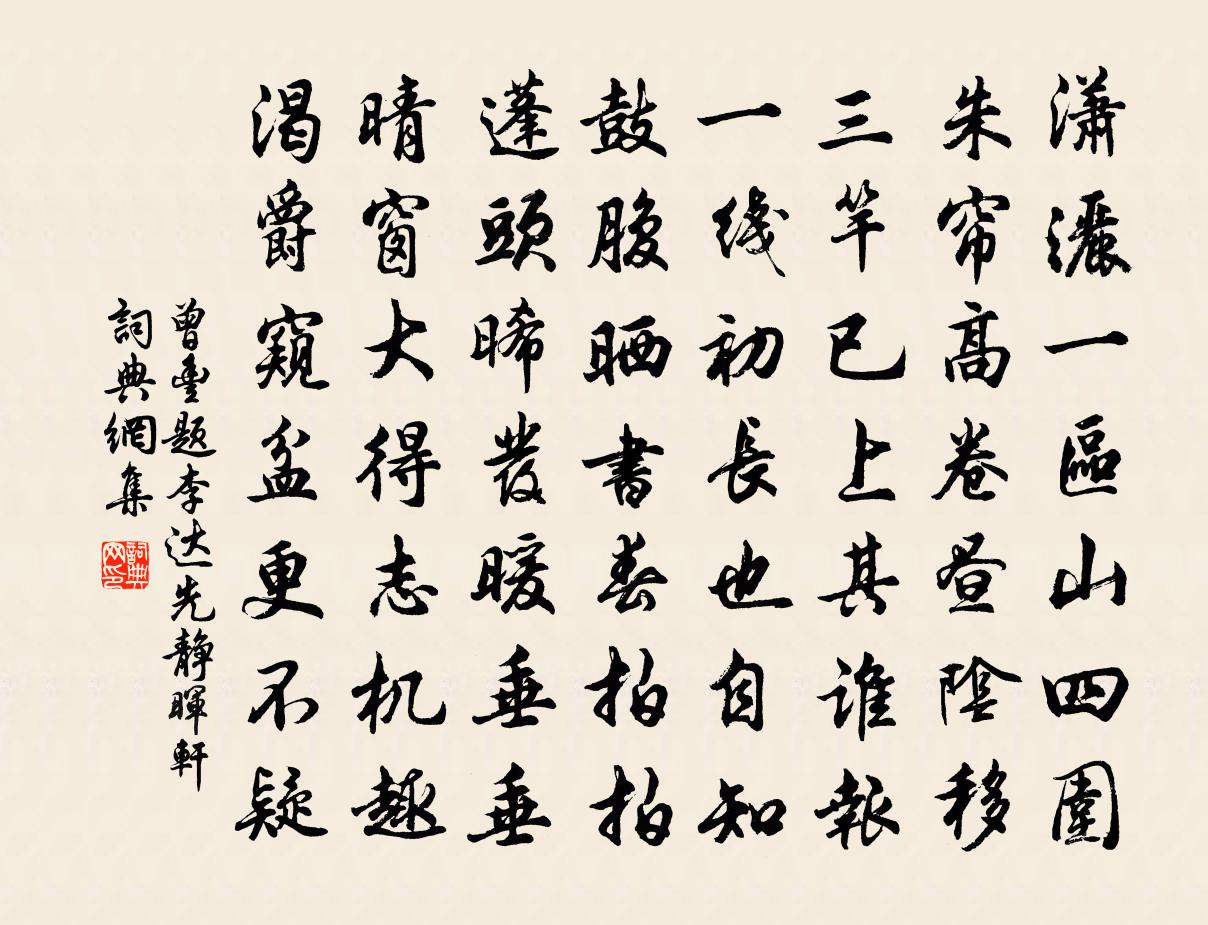 瀟灑一區山四圍
朱帘高卷昼陰移
三竿已上其誰報
一线初長也自知
鼓腹晒書春拍拍
蓬頭晞發暖垂垂
晴窗大得志机趣
渴爵窺盆更不疑
曾豊題李达先静暉軒
詞典網集
詞典网印